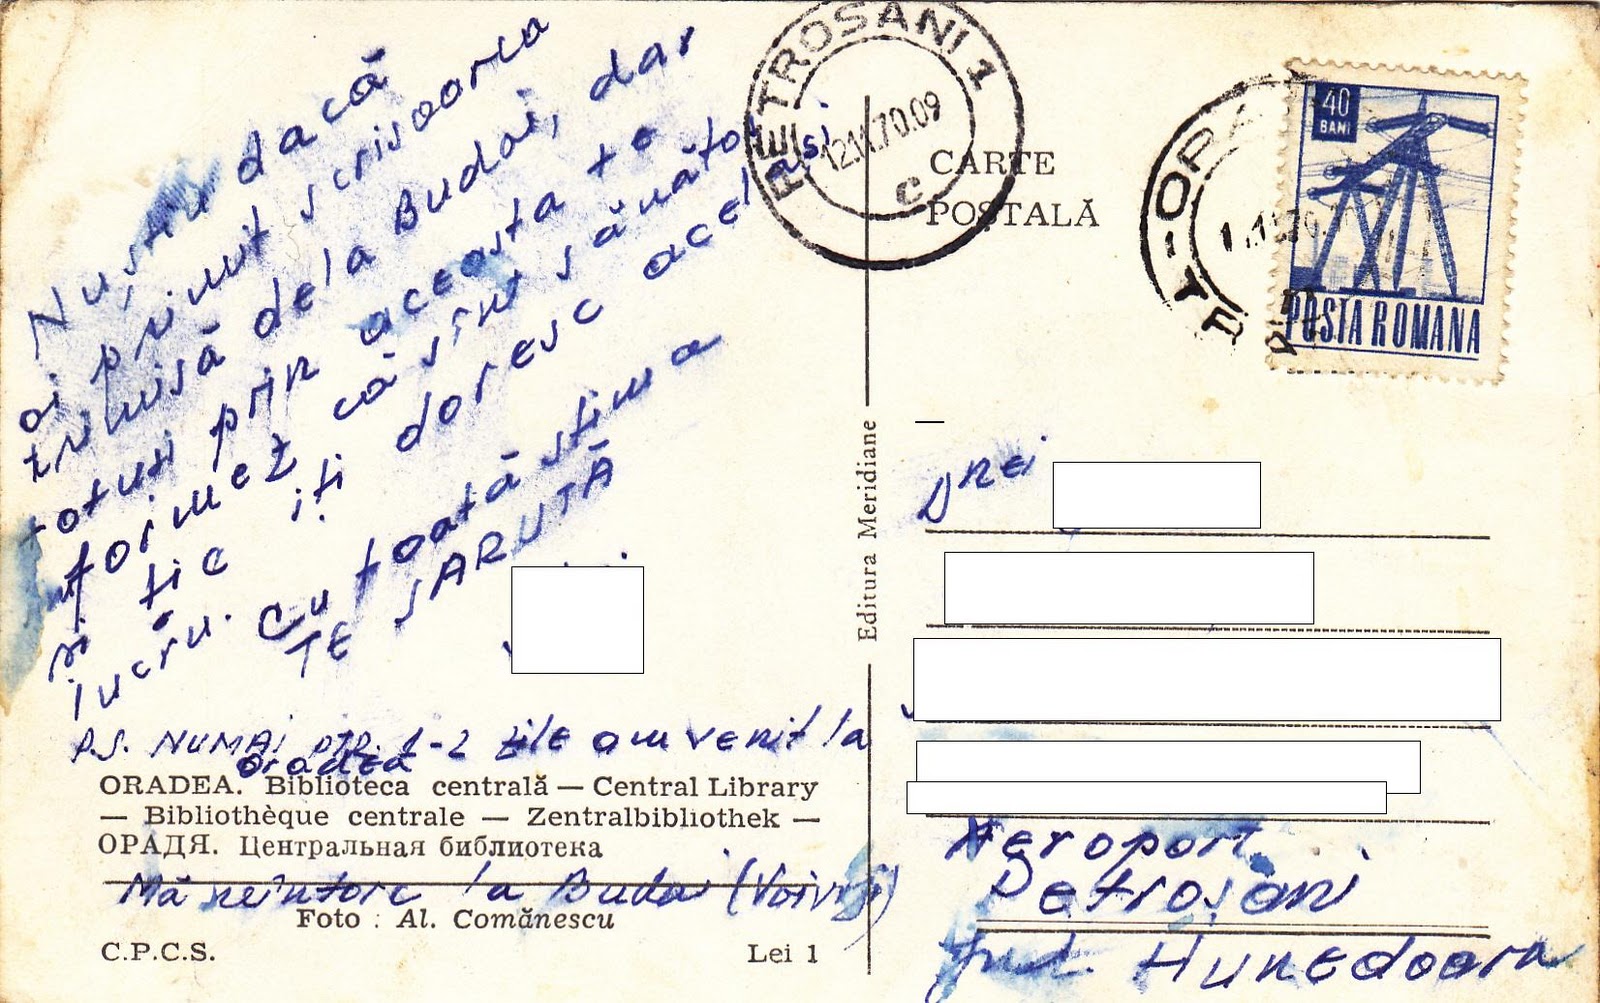 Nu știu dacă
ai primit scrisoarea
trimisă dela Budoi, dar
totuși prin aceasta te
informez că sînt sănătos
și ție îți doresc același
lucru. Cu toată stima
TE SARUTĂ
P.S. NUMAI ptr. 1-2 zile am venit la
Oradea
ORADEA. Biblioteca centrală — Central Library
— Bibliothèque centrale — Zentralbibliothek —
ОРАДЯ. Центральная библиотека
Mă reîntorc la Budoi
Foto : Al. Comănescu
C.P.C.S. Lei 1
Editura Meridiane
PETROSANI 1
12.11.70.09
C
CARTE
POȘTALĂ
ORA
40
BANI
POSTA ROMANA
Drei
Aeroport
Petroșani
Jud. Hunedoara